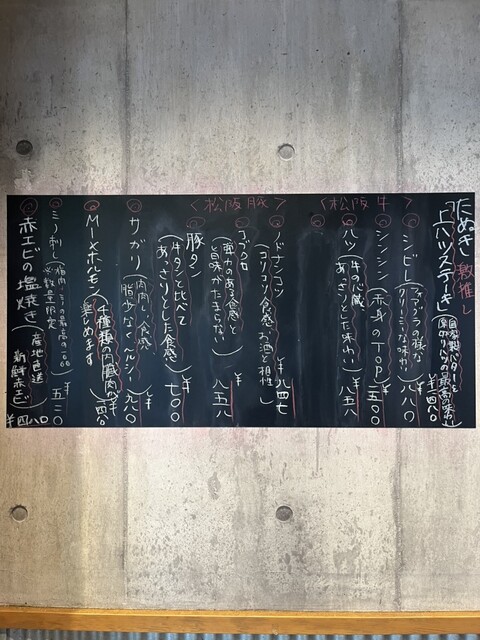 たぬきし 激推し
上ハツステーキ
自家製バターと
厚切りハツの最高の味わい
¥一四八〇
<松阪牛>
シビレ
フォアグラの様な
クリーミーな味わい
八〇〇
シンシン(赤身のTOP)
¥
一五〇〇
ハツ
牛の心臓
あっさりとした味わい
¥
八五八
<松阪豚>
ノドナンコツ
(コリコリ食感、お酒と相性◎)
¥八四七
コブクロ
弾力のある食感と
旨味がたまらない
¥
八五八
豚タン
牛タンと比べて
あっさりとした食感
¥
七〇〇
サガリ
肉肉しい食感
脂少なくヘルシー
¥
九八〇
Mixホルモン
4種類の内臓肉が
楽しめます
¥
ミノ刺し
※数量限定
¥
赤エビの塩焼き
産地直送
新鮮赤エビ
¥四八〇